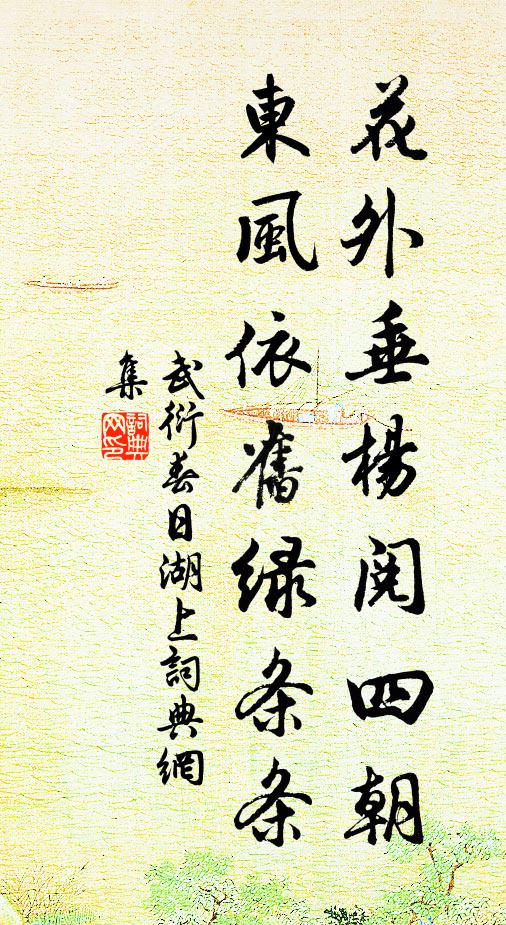 花外垂楊閱四朝
東風依舊绿条条
武衍春日湖上詞典網
集
詞典
网印